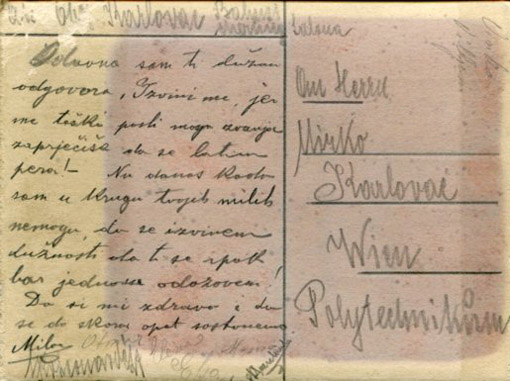 Karlovac
Odavna sam ti dužan
odgovora, Izvini me, jer
me teški posli moga zvanja
da se latim
pera! — No danas kada
sam u krugu tvojih milih
nemogu, da se izvinem
dužnosti da ti se ipak
bar jednom odazovem!
Da si mi zdravo i da
se do skora opet sastanemo
Milan
An Herrn
Mirko
Karlovac
Wien
Polytechnikum